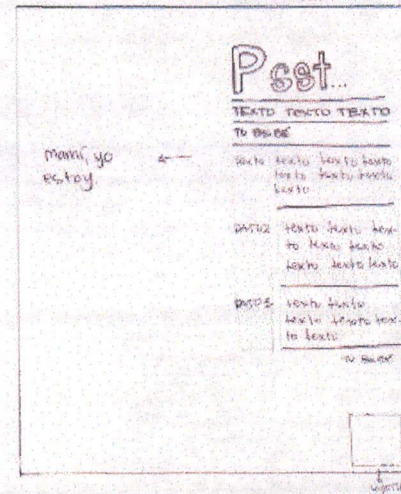 Psst...
TEXTO TEXTO TEXTO
TU BEBÉ
mami, yo
estoy
texto texto texto texto
texto texto texto texto
texto
texto texto tex-
to texto texto
texto texto texto
texto texto
texto texto tex-
to texto
TU BEBÉ